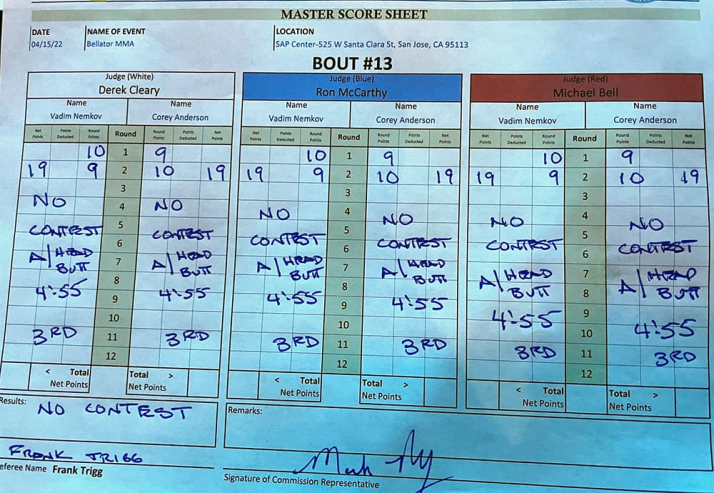 MASTER SCORE SHEET
DATE NAME OF EVENT LOCATION
04/15/22 Bellator MMA SAP Center-525 W Santa Clara St, San Jose, CA 95113
BOUT #13
Judge (White)
Derek Cleary
Name Name
Vadim Nemkov Corey Anderson
Net Points Points Deducted Round Points Round Round Points Points Deducted Net Points
10 1 9
19 9 2 10 19
3
NO 4 NO
CONTEST 5 CONTEST
6
A/HEAD BUTT 7 A/HEAD BUTT
8
4:55 9 4:55
10
3RD 11 3RD
12
< Total Net Points Total > Net Points
Judge (Blue)
Ron McCarthy
Name Name
Vadim Nemkov Corey Anderson
Net Points Points Deducted Round Points Round Round Points Points Deducted Net Points
10 1 9
19 9 2 10 19
3
NO 4 NO
CONTEST 5 CONTEST
6
A/HEAD BUTT 7 A/HEAD BUTT
8
4:55 9 4:55
10
3RD 11 3RD
12
< Total Net Points Total > Net Points
Judge (Red)
Michael Bell
Name Name
Vadim Nemkov Corey Anderson
Net Points Points Deducted Round Points Round Round Points Points Deducted Net Points
10 1 9
19 9 2 10 19
3
NO 4 NO
5
CONTEST 6 CONTEST
A/HEAD BUTT 7 A/HEAD BUTT
8
4:55 9 4:55
10
3RD 11 3RD
12
< Total Net Points Total > Net Points
Results: NO CONTEST
Remarks:
FRANK TRIGG
eferee Name Frank Trigg
Signature of Commission Representative